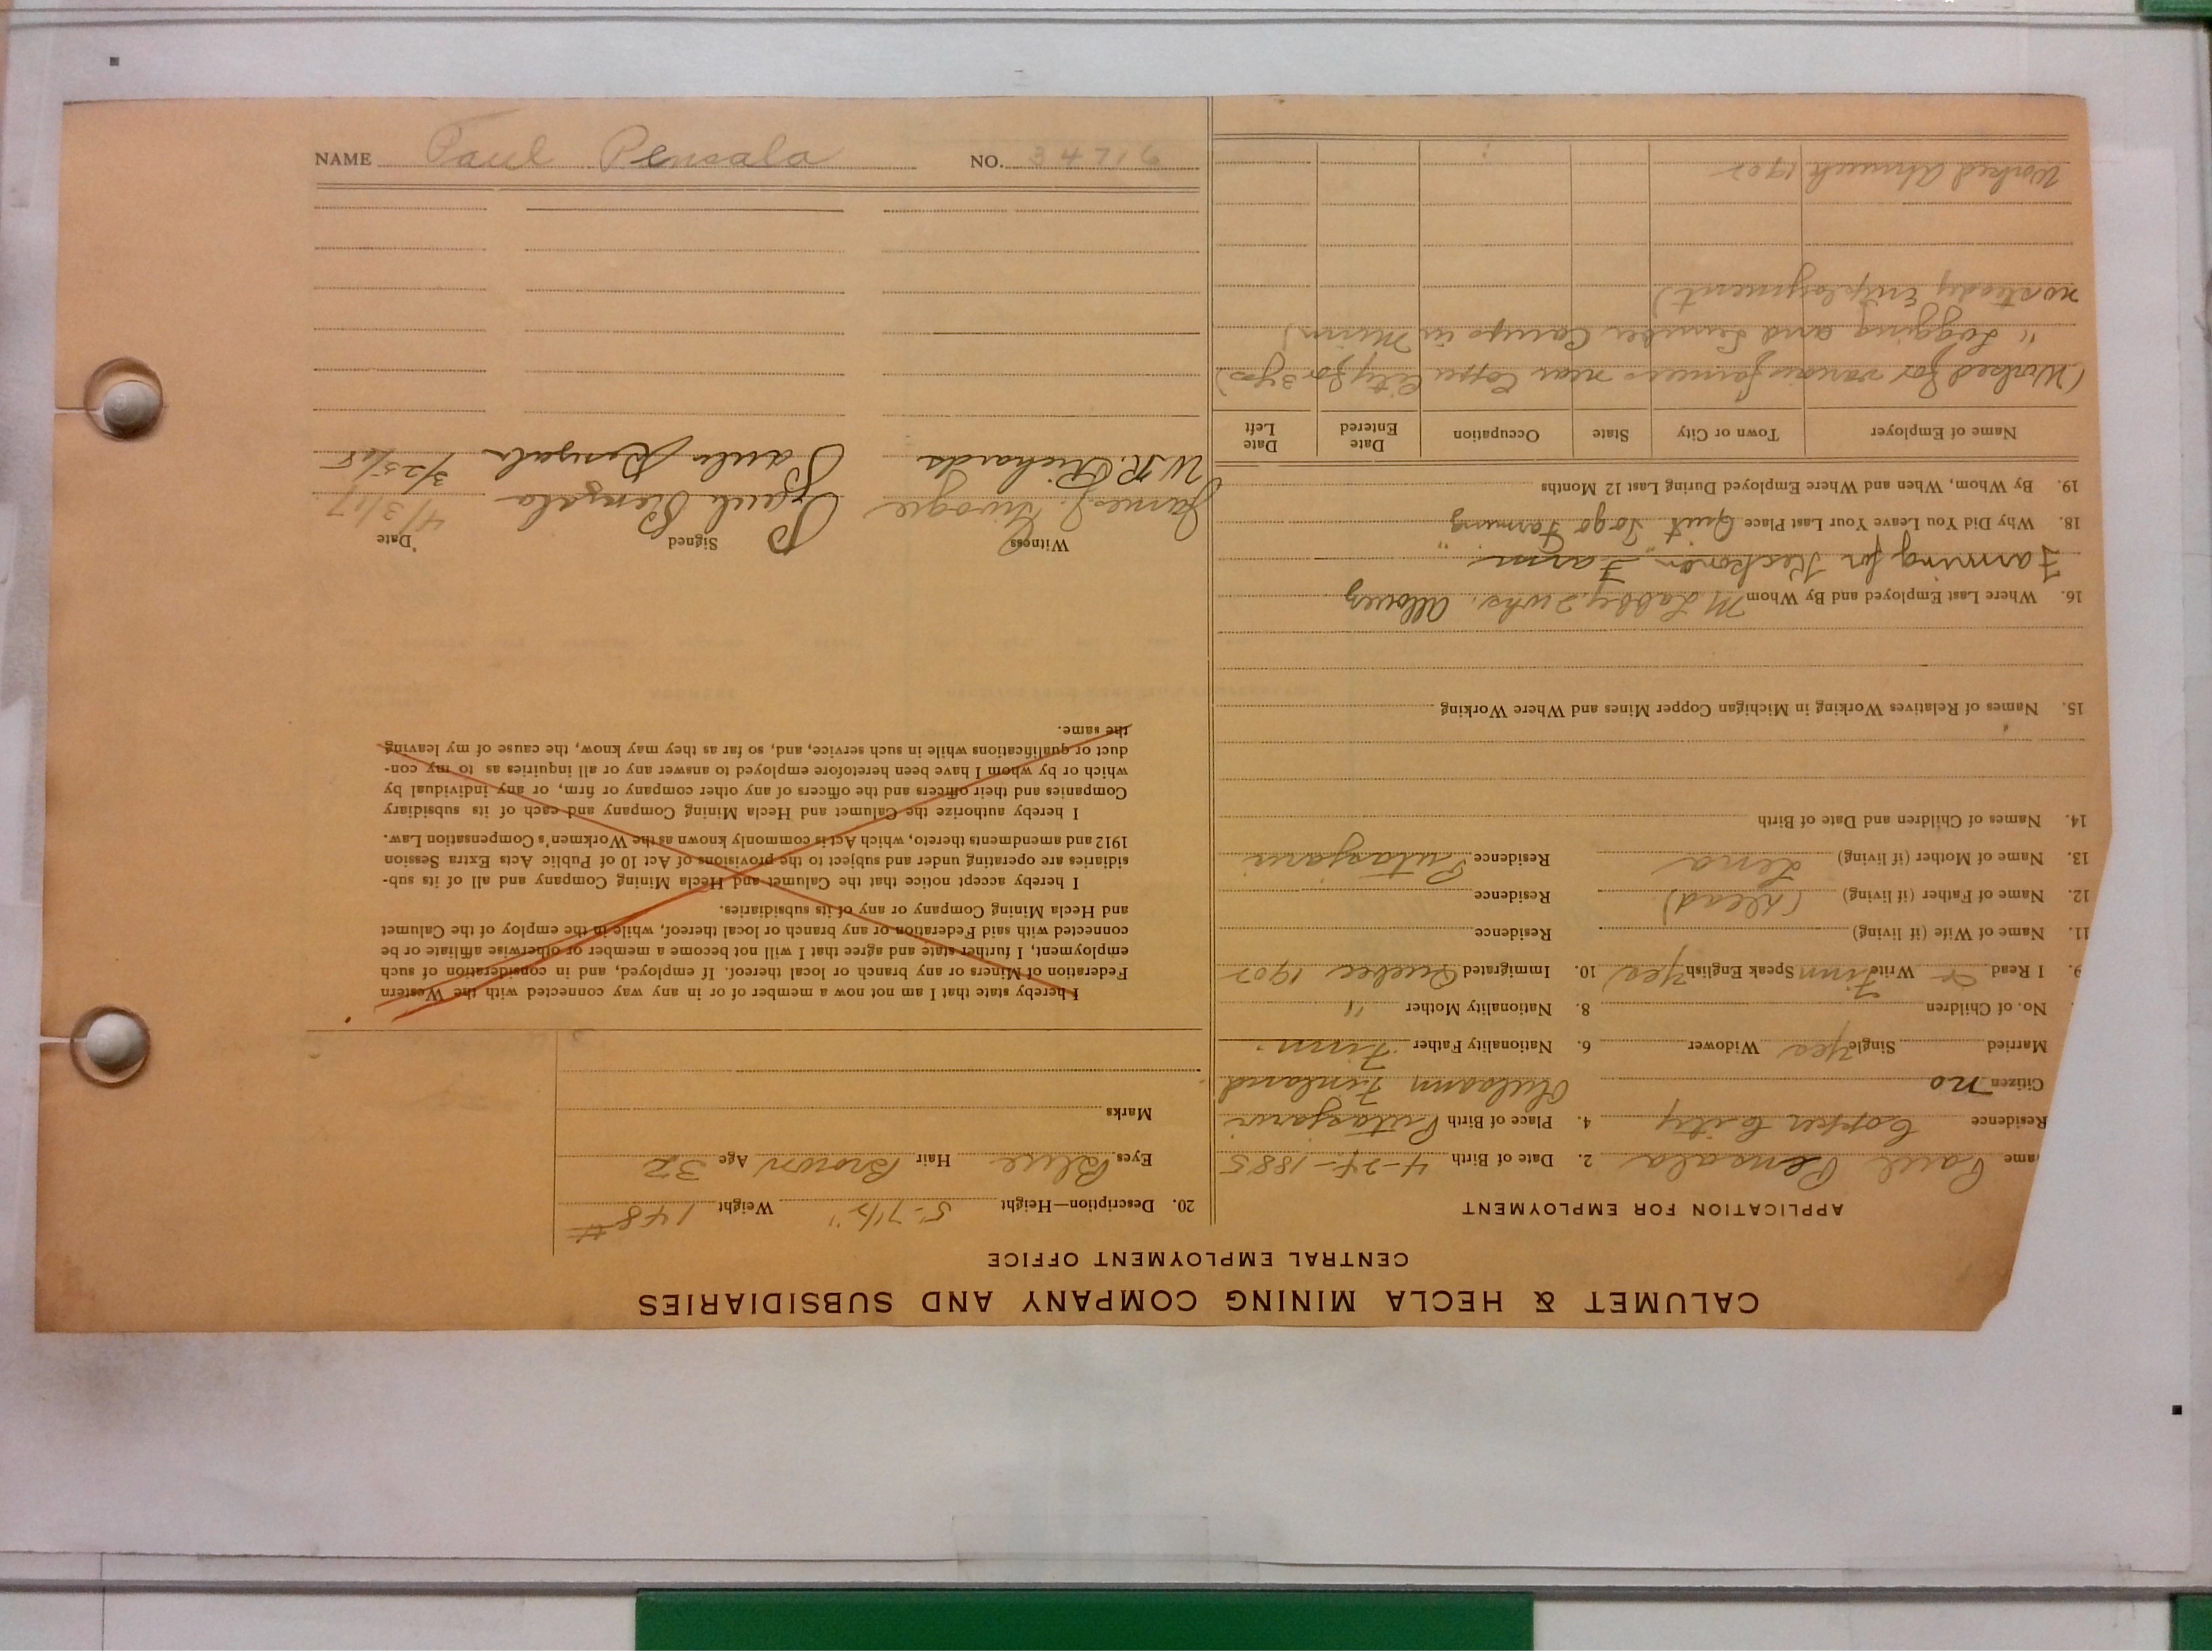 CALUMET & HECLA MINING COMPANY AND SUBSIDIARIES
CENTRAL EMPLOYMENT OFFICE
APPLICATION FOR EMPLOYMENT
ame Paul Pensala 2. Date of Birth 4-24-1885
Residence Copper City 4. Place of Birth Putasjarvi
Citizen no Finland
Married Single Yes Widower 6. Nationality Father Finn.
No. of Children 8. Nationality Mother "
9. I Read & Write Finn Speak English Yes 10. Immigrated Quebec 1902
11. Name of Wife (if living) Residence
12. Name of Father (if living) (dead) Residence
13. Name of Mother (if living) Lena Residence Putasjarvi
14. Names of Children and Date of Birth
15. Names of Relatives Working in Michigan Copper Mines and Where Working
16. Where Last Employed and By Whom M Labby 2 wks. Allouez
Farming for Keskonen " Farm "
18. Why Did You Leave Your Last Place Quit To go Farming
19. By Whom, When and Where Employed During Last 12 Months
Name of Employer Town or City State Occupation Date Entered Date Left
(Worked for various farmers near Copper City for 3 yrs)
" Logging and Lumber Camps in Minn)
no steady Employment)
Worked Ahmeek 1902
20. Description—Height 5-7½" Weight 148#
Eyes Blue Hair Brown Age 32
Marks
I hereby state that I am not now a member of or in any way connected with the Western
Federation of Miners or any branch or local thereof. If employed, and in consideration of such
employment, I further state and agree that I will not become a member or otherwise affiliate or be
connected with said Federation or any branch or local thereof, while in the employ of the Calumet
and Hecla Mining Company or any of its subsidiaries.
I hereby accept notice that the Calumet and Hecla Mining Company and all of its sub-
sidiaries are operating under and subject to the provisions of Act 10 of Public Acts Extra Session
1912 and amendments thereto, which Act is commonly known as the Workmen's Compensation Law.
I hereby authorize the Calumet and Hecla Mining Company and each of its subsidiary
Companies and their officers and the officers of any other company or firm, or any individual by
which or by whom I have been heretofore employed to answer any or all inquiries as to my con-
duct or qualifications while in such service, and, so far as they may know, the cause of my leaving
the same.
Witness Signed Date
James J. Paul Pensala 4/3/17
W.R. Richards Paul 3/25/18
NAME Paul Pensala NO. 34716